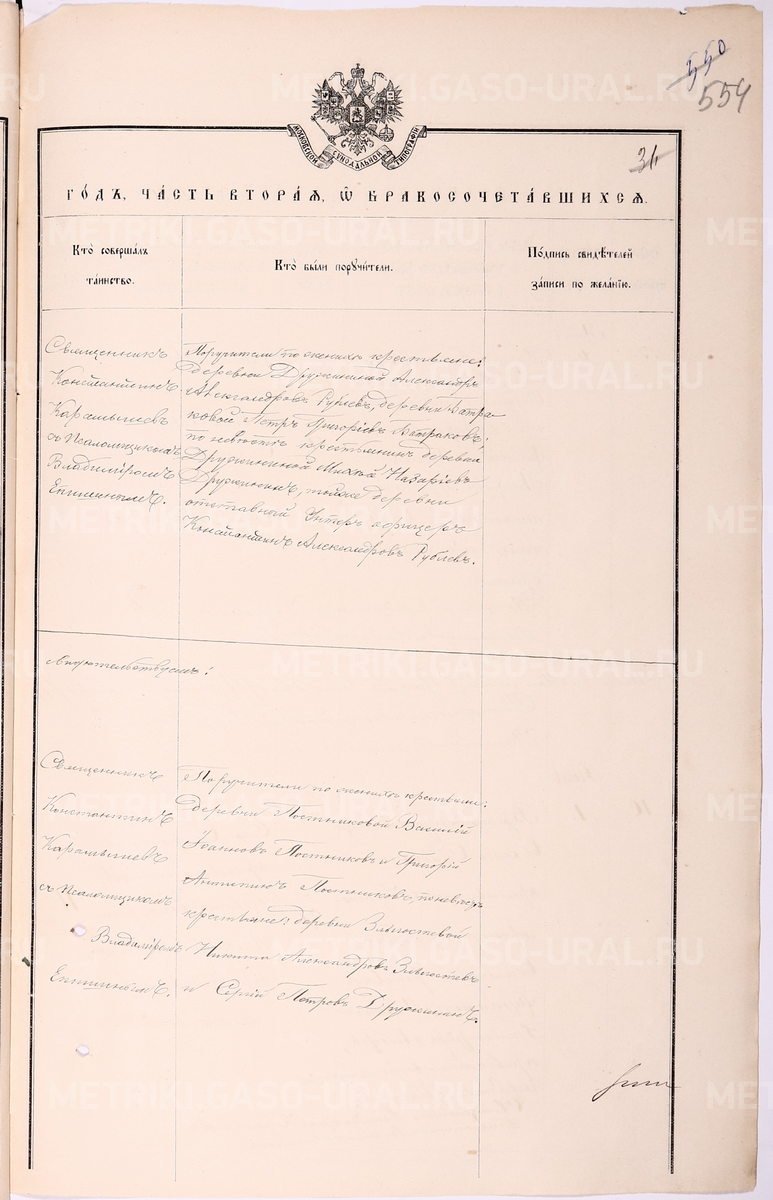 550
554
МОСКОВСКОЙ СѴНОДАЛЬНОЙ ТИПОГРАФІИ
31
ГО́ДЪ, ЧА́СТЬ ВТОРА́Я, Ѡ҆ БРАКОСОЧЕТА́ВШИХСЯ.
Кто̀ соверша́лъ
та́инство.
Кто̀ бы́ли порꙋчи́тели.
По́дпись свидѣ́телей
за́писи по жела́нїю.
Священникъ
Константинъ
Карамышевъ
съ Псаломщикомъ
Владиміромъ
Поручители по женихѣ крестьяне:
деревни Дружининой Александръ
Александровъ Рублевъ, деревни Патра-
ковой Петръ Григоріевъ Патраковъ;
по невѣстѣ крестьянинъ деревни
Дружининой Михей Назаріевъ
Дружининъ, тойже деревни
отставный Унтеръ офицеръ
Константинъ Александровъ Рублевъ.
Священникъ
Константинъ
Карамышевъ
съ Псаломщикомъ
Владиміромъ
Поручители по женихѣ крестьяне:
деревни Постниковой Василій
Іоанновъ Постниковъ и Григорій
Антипинъ Постниковъ, по невѣстѣ
крестьяне: деревни
Никита Александровъ
и Сергій Петровъ Дружининъ.
METRIKI.GASO-URAL.RU